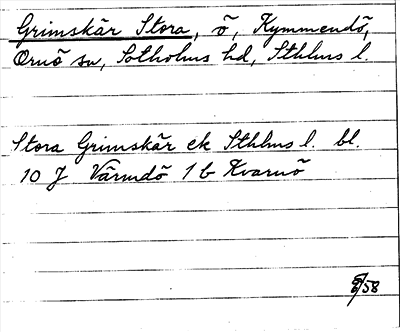 Grimskär Stora, ö, Kymmendö,
Ornö sn, Sotholms hd, Sthlms l.
Stora Grimskär ek Sthlms l. bl.
10 J Värmdö 1 b Kvarnö
58